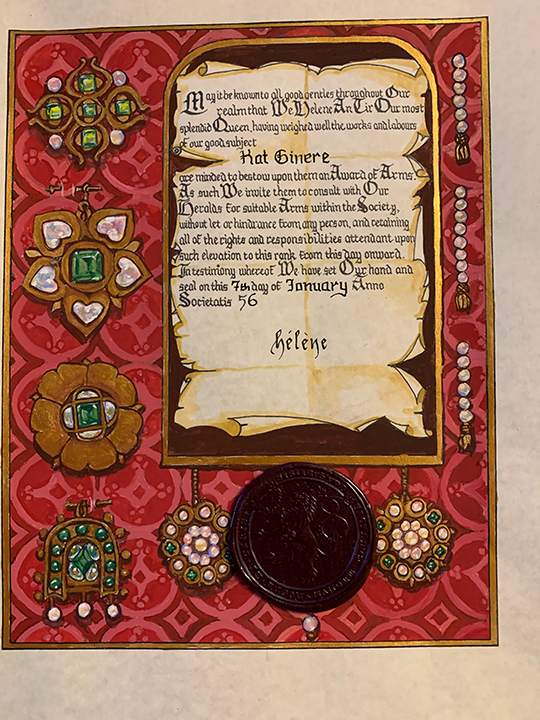 May it be known to all good gentles throughout Our
realm that We Helene An Tir Our most
splendid Queen, having weighed well the works and labours
of our good subject
Kat Ginere
are minded to bestow upon them an Award of Arms.
As such We invite them to consult with Our
Heralds for suitable Arms within the Society,
without let or hindrance from any person, and retaining
all of the rights and responsibilities attendant upon
such elevation to this rank from this day onward.
In testimony whereof We have set Our hand and
seal on this 7th day of January Anno
Societatis 56
hélène